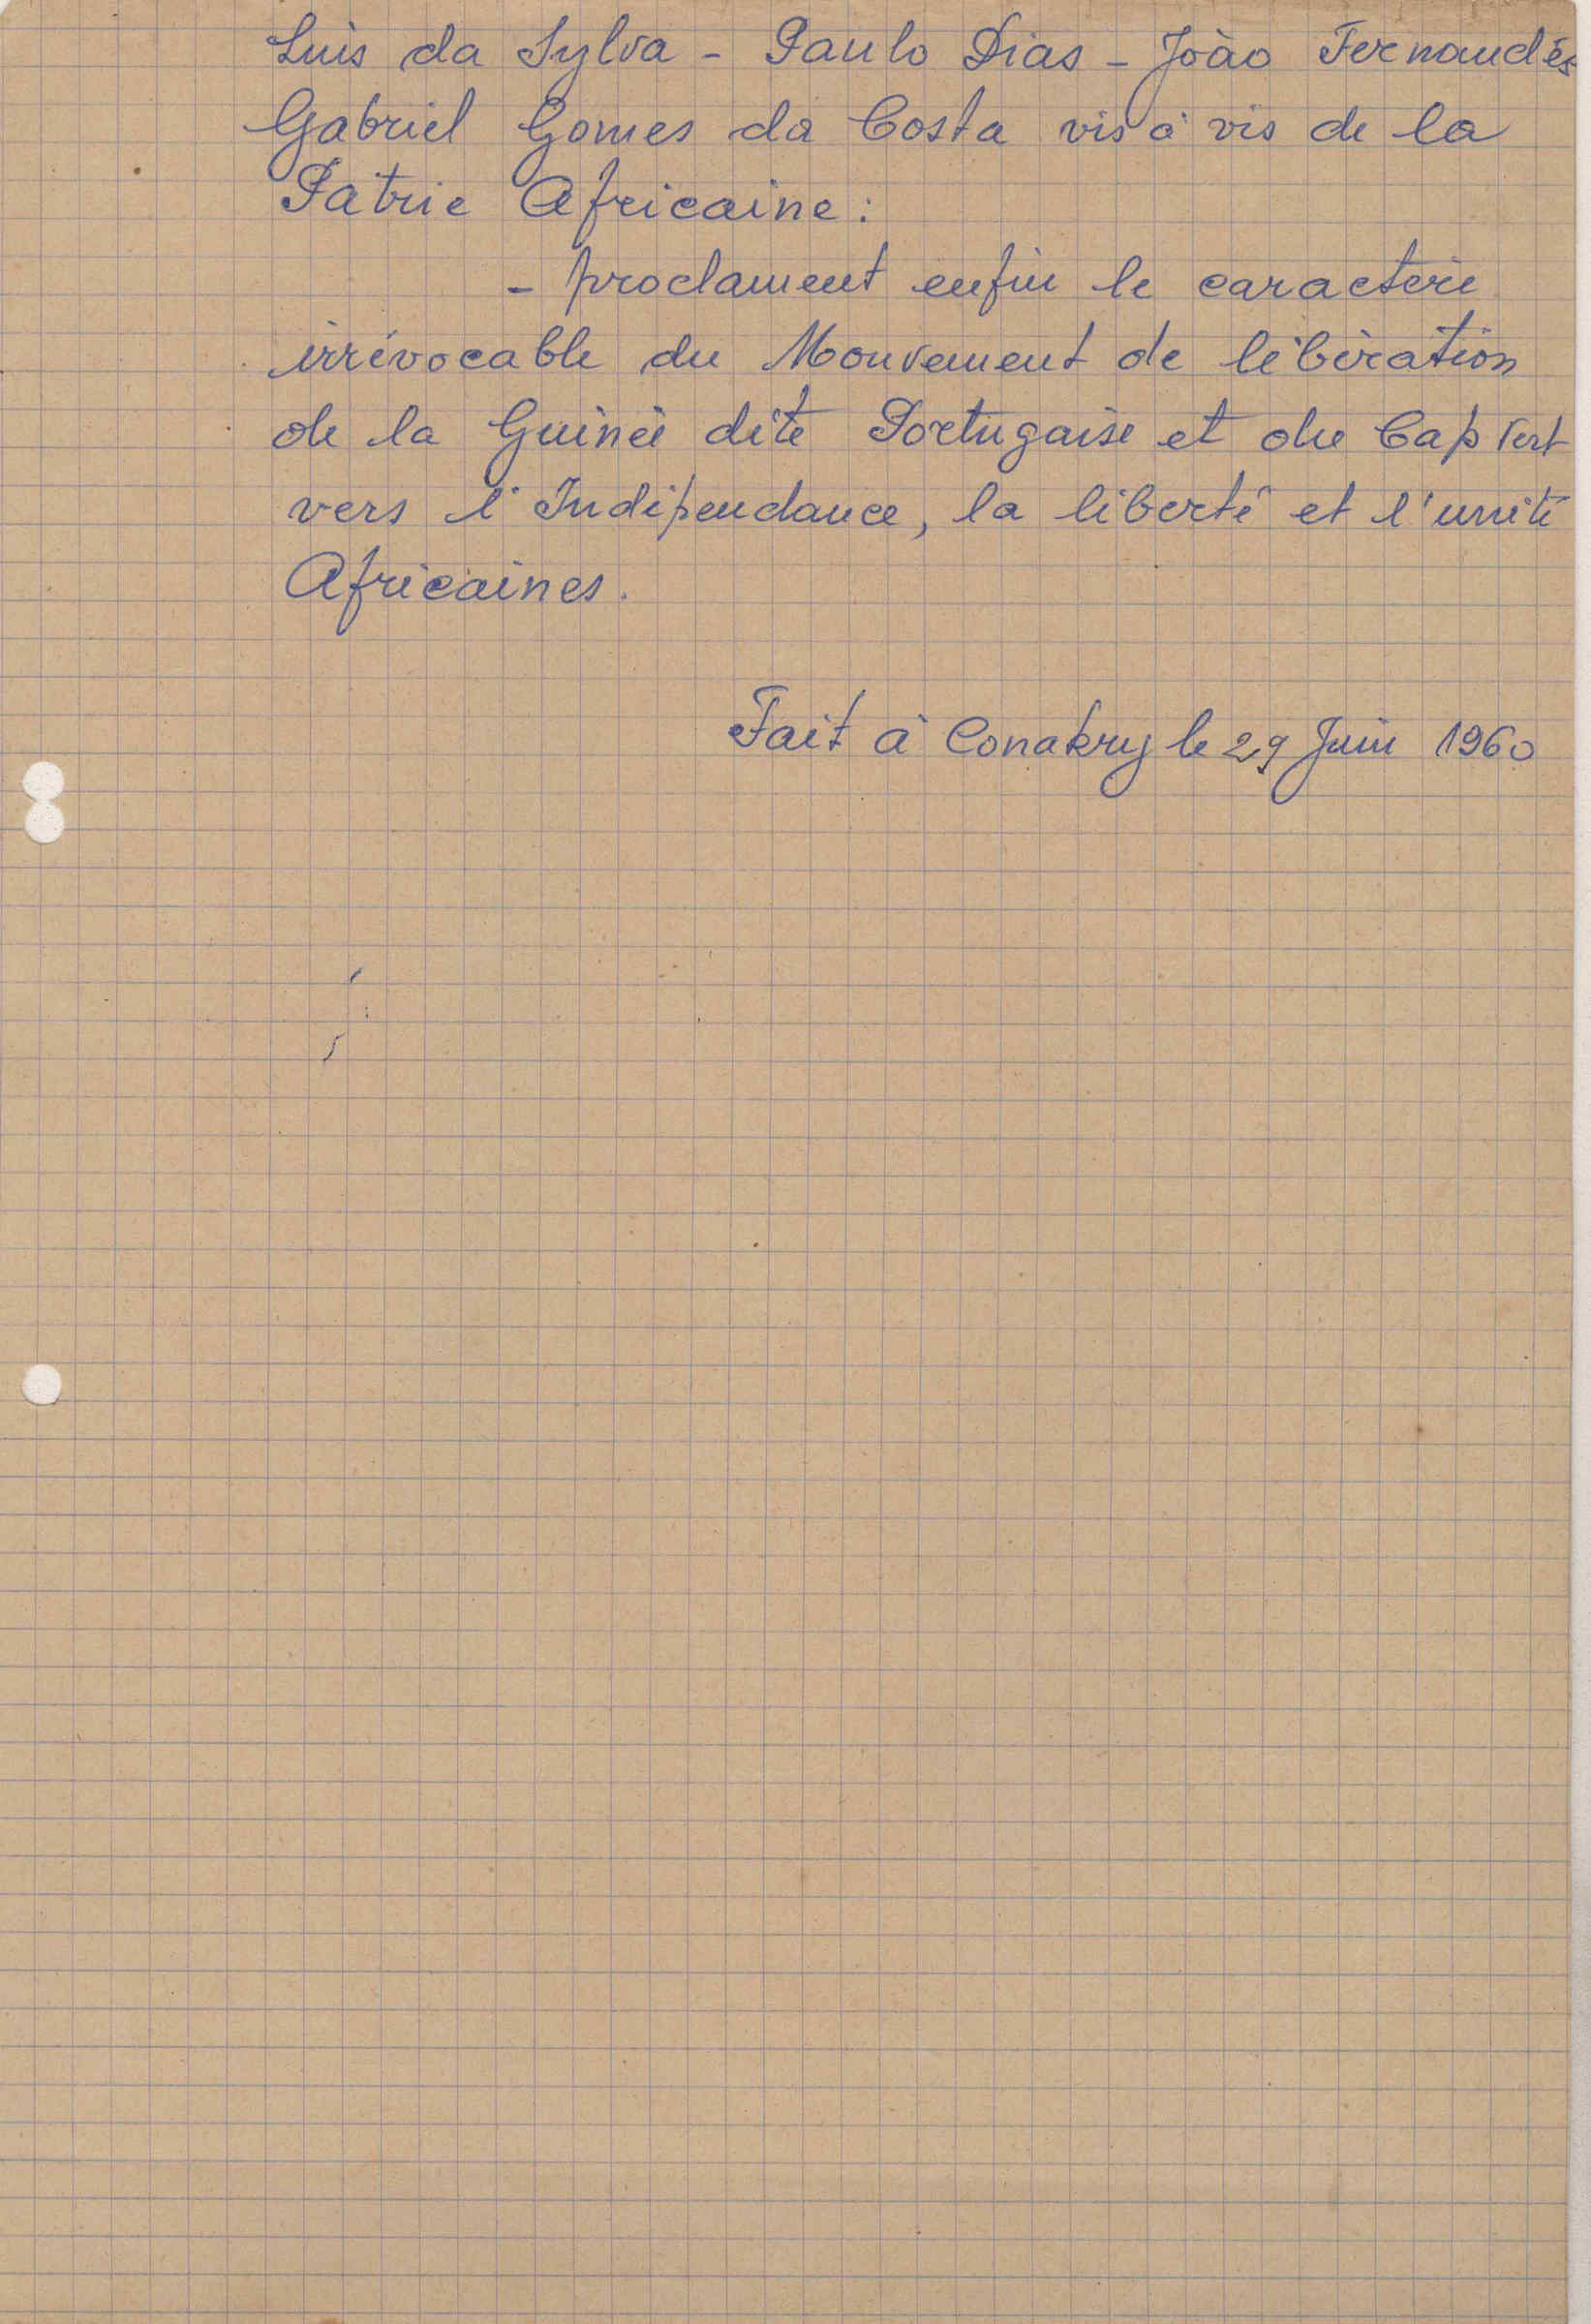 Luis da Sylva - Paulo Dias - Joào Fernandès
Gabriel Gomes da Costa vis à vis de la
Patrie Africaine :
- proclament enfin le caractère
irrévocable du Mouvement de libération
de la Guinée dite Portugaise et du Cap Vert
vers l'Indépendance, la liberté et l'unité
Africaines.
Fait à Conakry le 29 Juin 1960